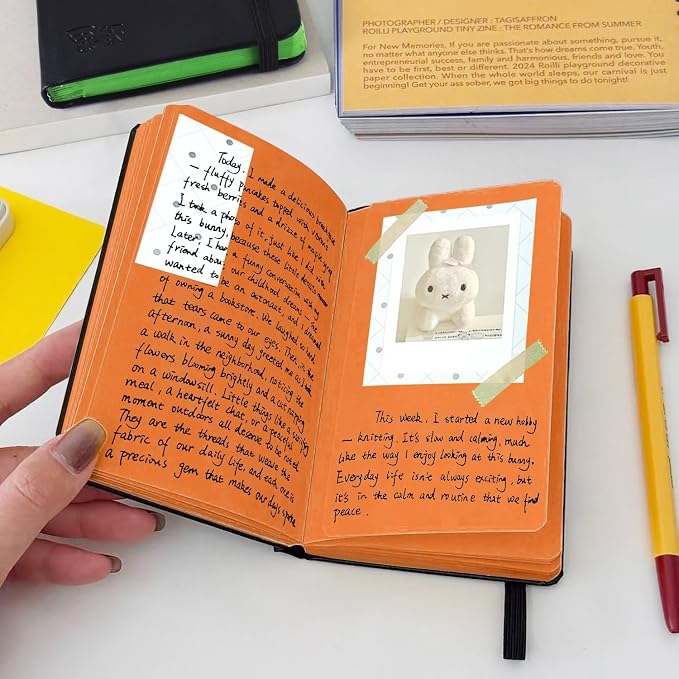 PHOTOGRAPHER / DESIGNER : TAGISAFFRON
ROILLI PLAYGROUND TINY ZINE : THE ROMANCE FROM SUMMER
For New Memories, If you are passionate about something, pursue it,
no matter what anyone else thinks. That's how dreams come true. Youth,
entrepreneurial success, family and harmonious, friends and love. You
have to be first, best or different. 2024 Roilli playground decorative
paper collection. When the whole world sleeps, our carnival is just
beginning! Get your ass sober, we got big things to do tonight!
Today, I made a delicious breakfast
— fluffy pancakes topped with
fresh berries and a drizzle of maple syrup
I took a photo of it, just like I did with
this bunny, because these little details
Later, I had a funny conversation with my
friend about our childhood dreams — he
wanted to be an astronaut, and I dreamed
of owning a bookstore. We laughed so hard
that tears came to our eyes. Then, in the
afternoon, a sunny day greeted me as I took
a walk in the neighborhood, noticing the
flowers blooming brightly and a cat napping
on a windowsill. Little things like a
meal, a heartfelt chat, or a peaceful
moment outdoors all deserve to be noted.
They are the threads that weave the
fabric of our daily life, and each one is
a precious gem that makes our days
This week, I started a new hobby
— knitting. It's slow and calming, much
like the way I enjoy looking at this bunny.
Everyday life isn't always exciting, but
it's in the calm and routine that we find
peace.